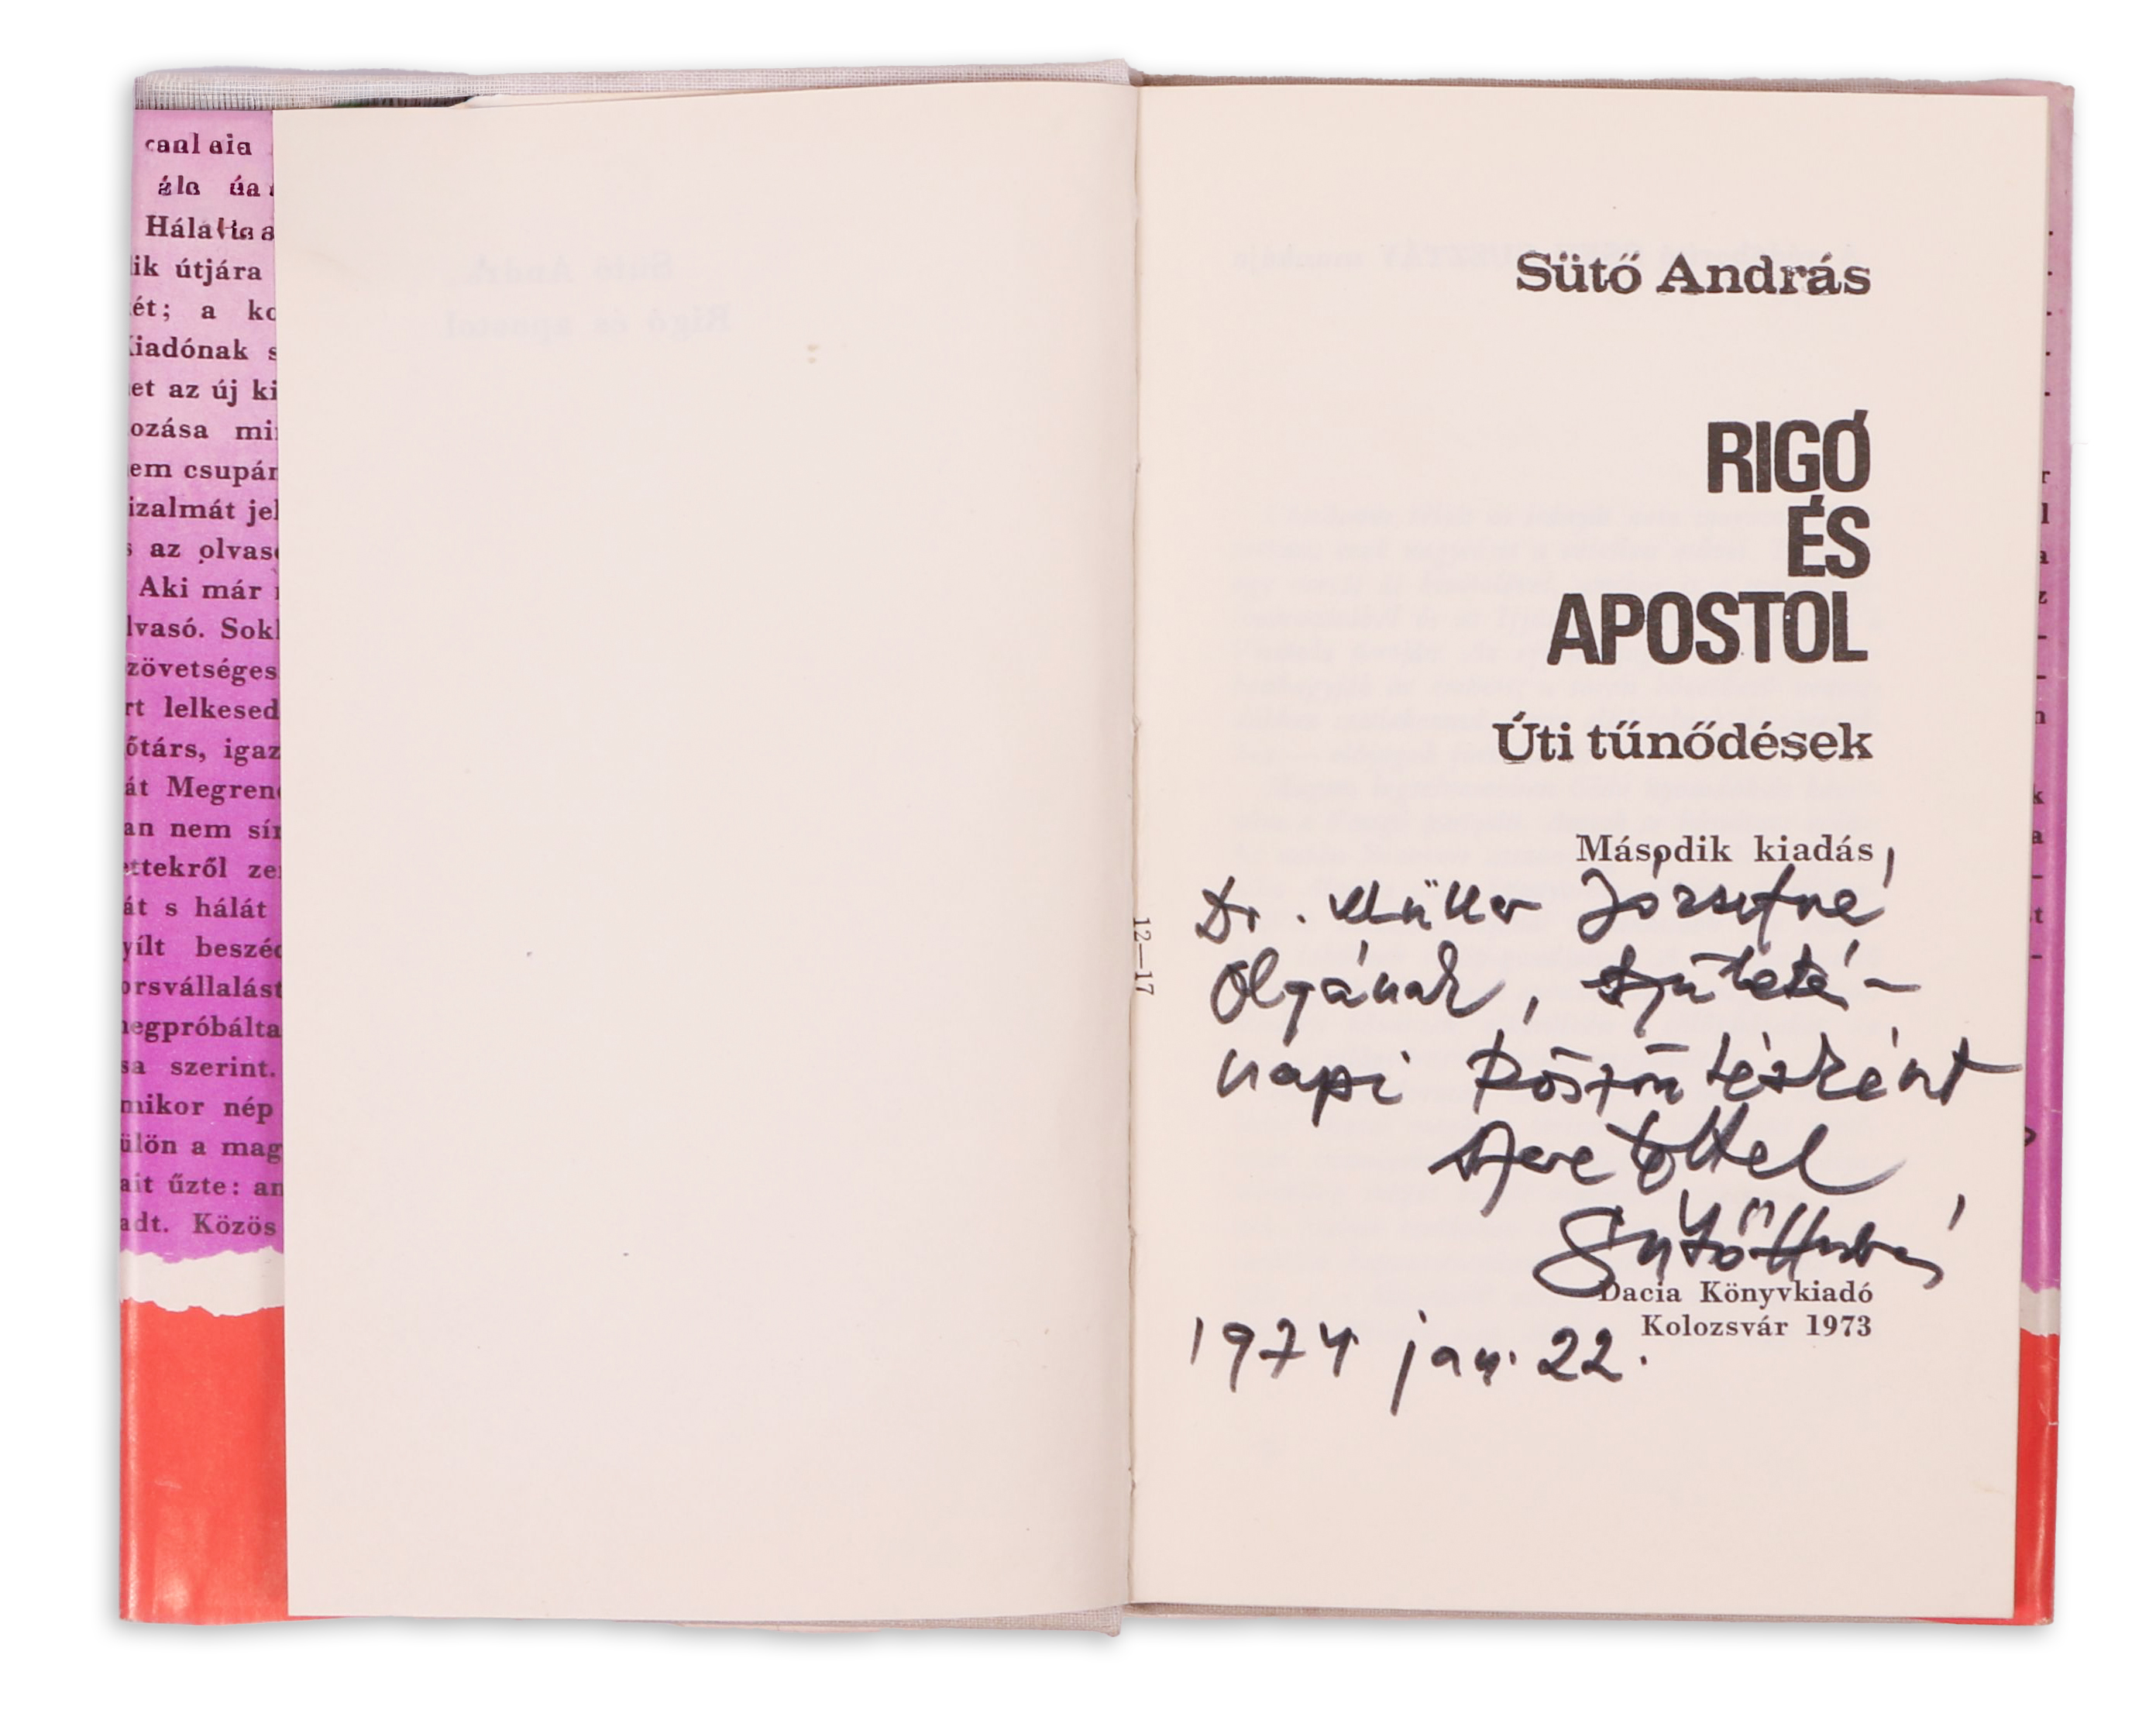 Hála
ik útjára
ét; a ko
iadónak s
et az új ki
ozása mi
em csupán
izalmát jel
s az olvas
Aki már
lvasó. Sok
zövetséges
rt lelkesed
őtárs, igaz
át Megren
an nem sír
ettekről ze
át s hálát
yílt beszéd
orsvállalást
negpróbálta
sa szerint.
mikor nép
ülön a mag
ait űzte: an
adt. Közös
12—17
Sütő András
RIGÓ
ÉS
APOSTOL
Úti tűnődések
Második kiadás
Dr. Müller Józsefné
Olgának, születé-
napi köszöntésként
szeretettel
Sütő András
Dacia Könyvkiadó
Kolozsvár 1973
1974 jan. 22.